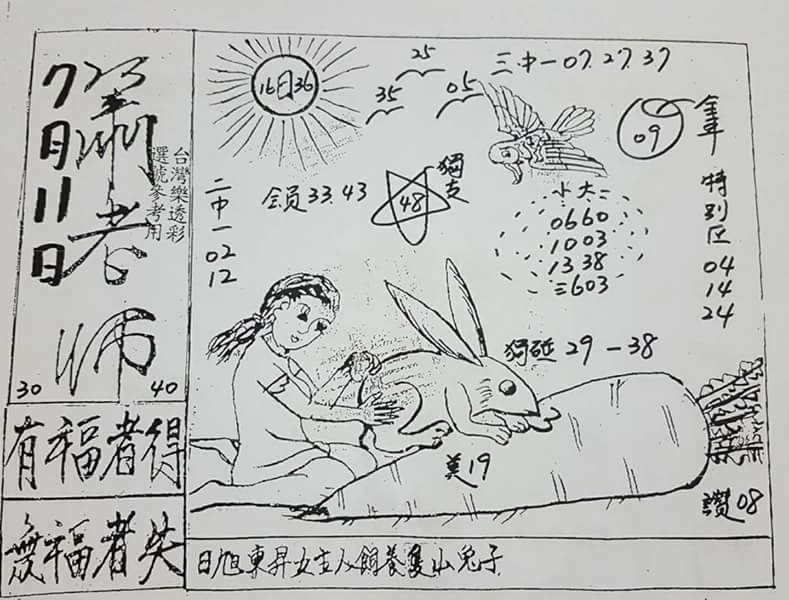 7月11日
蕭老師
台灣樂透彩
選號參考用
30 40
有福者得
無福者失
16日36
25
35
05
三.中一 07.27.37
09
特別区
04
14
24
二中一
02
12
会员33.43
48
獨支
小大二
0660
1003
1338
三603
29-38
19
讚08
日旭東昇女主人飼養隻山兔子